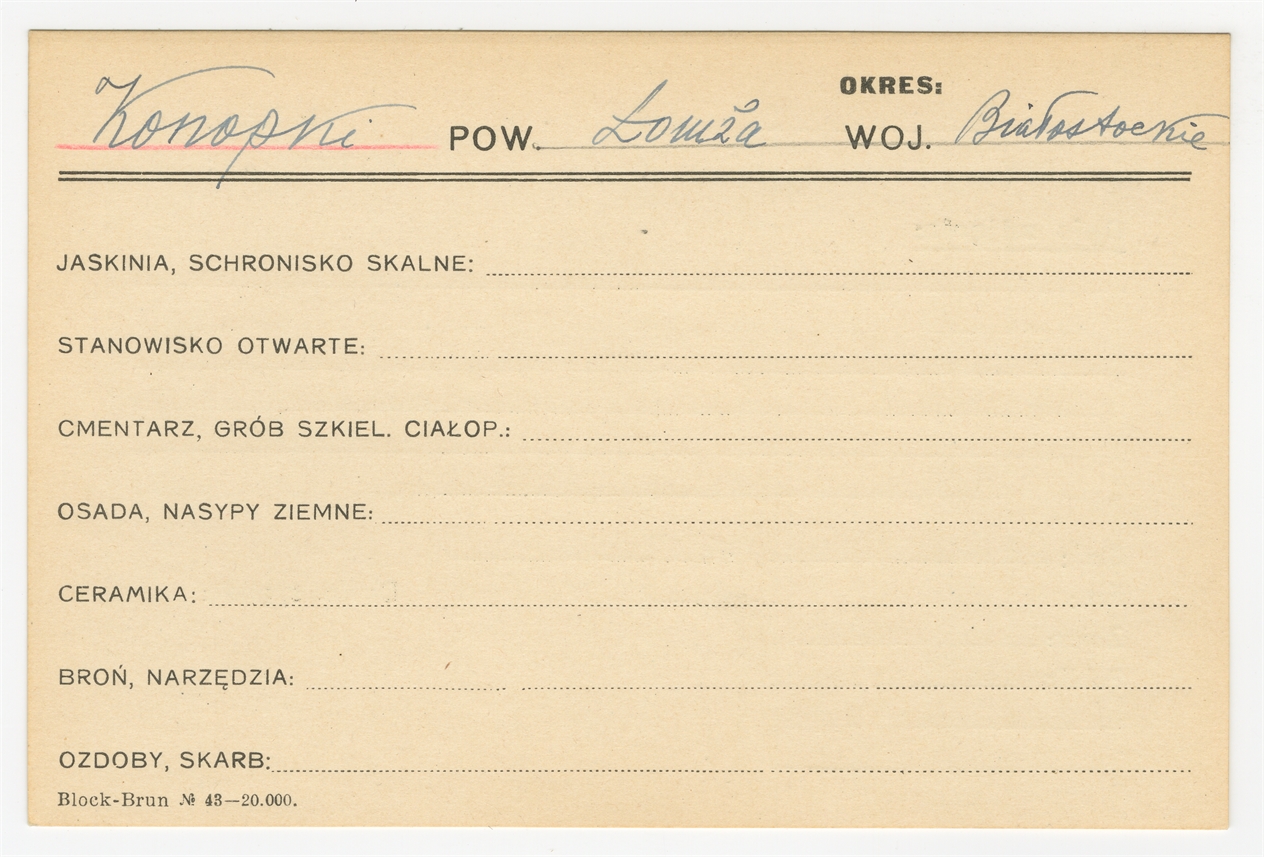 OKRES:
Konopki POW. Łomża WOJ. Białostockie
JASKINIA, SCHRONISKO SKALNE:
STANOWISKO OTWARTE:
CMENTARZ, GRÓB SZKIEL. CIAŁOP.:
OSADA, NASYPY ZIEMNE:
CERAMIKA:
BROŃ, NARZĘDZIA:
OZDOBY, SKARB:
Block-Brun № 43—20.000.